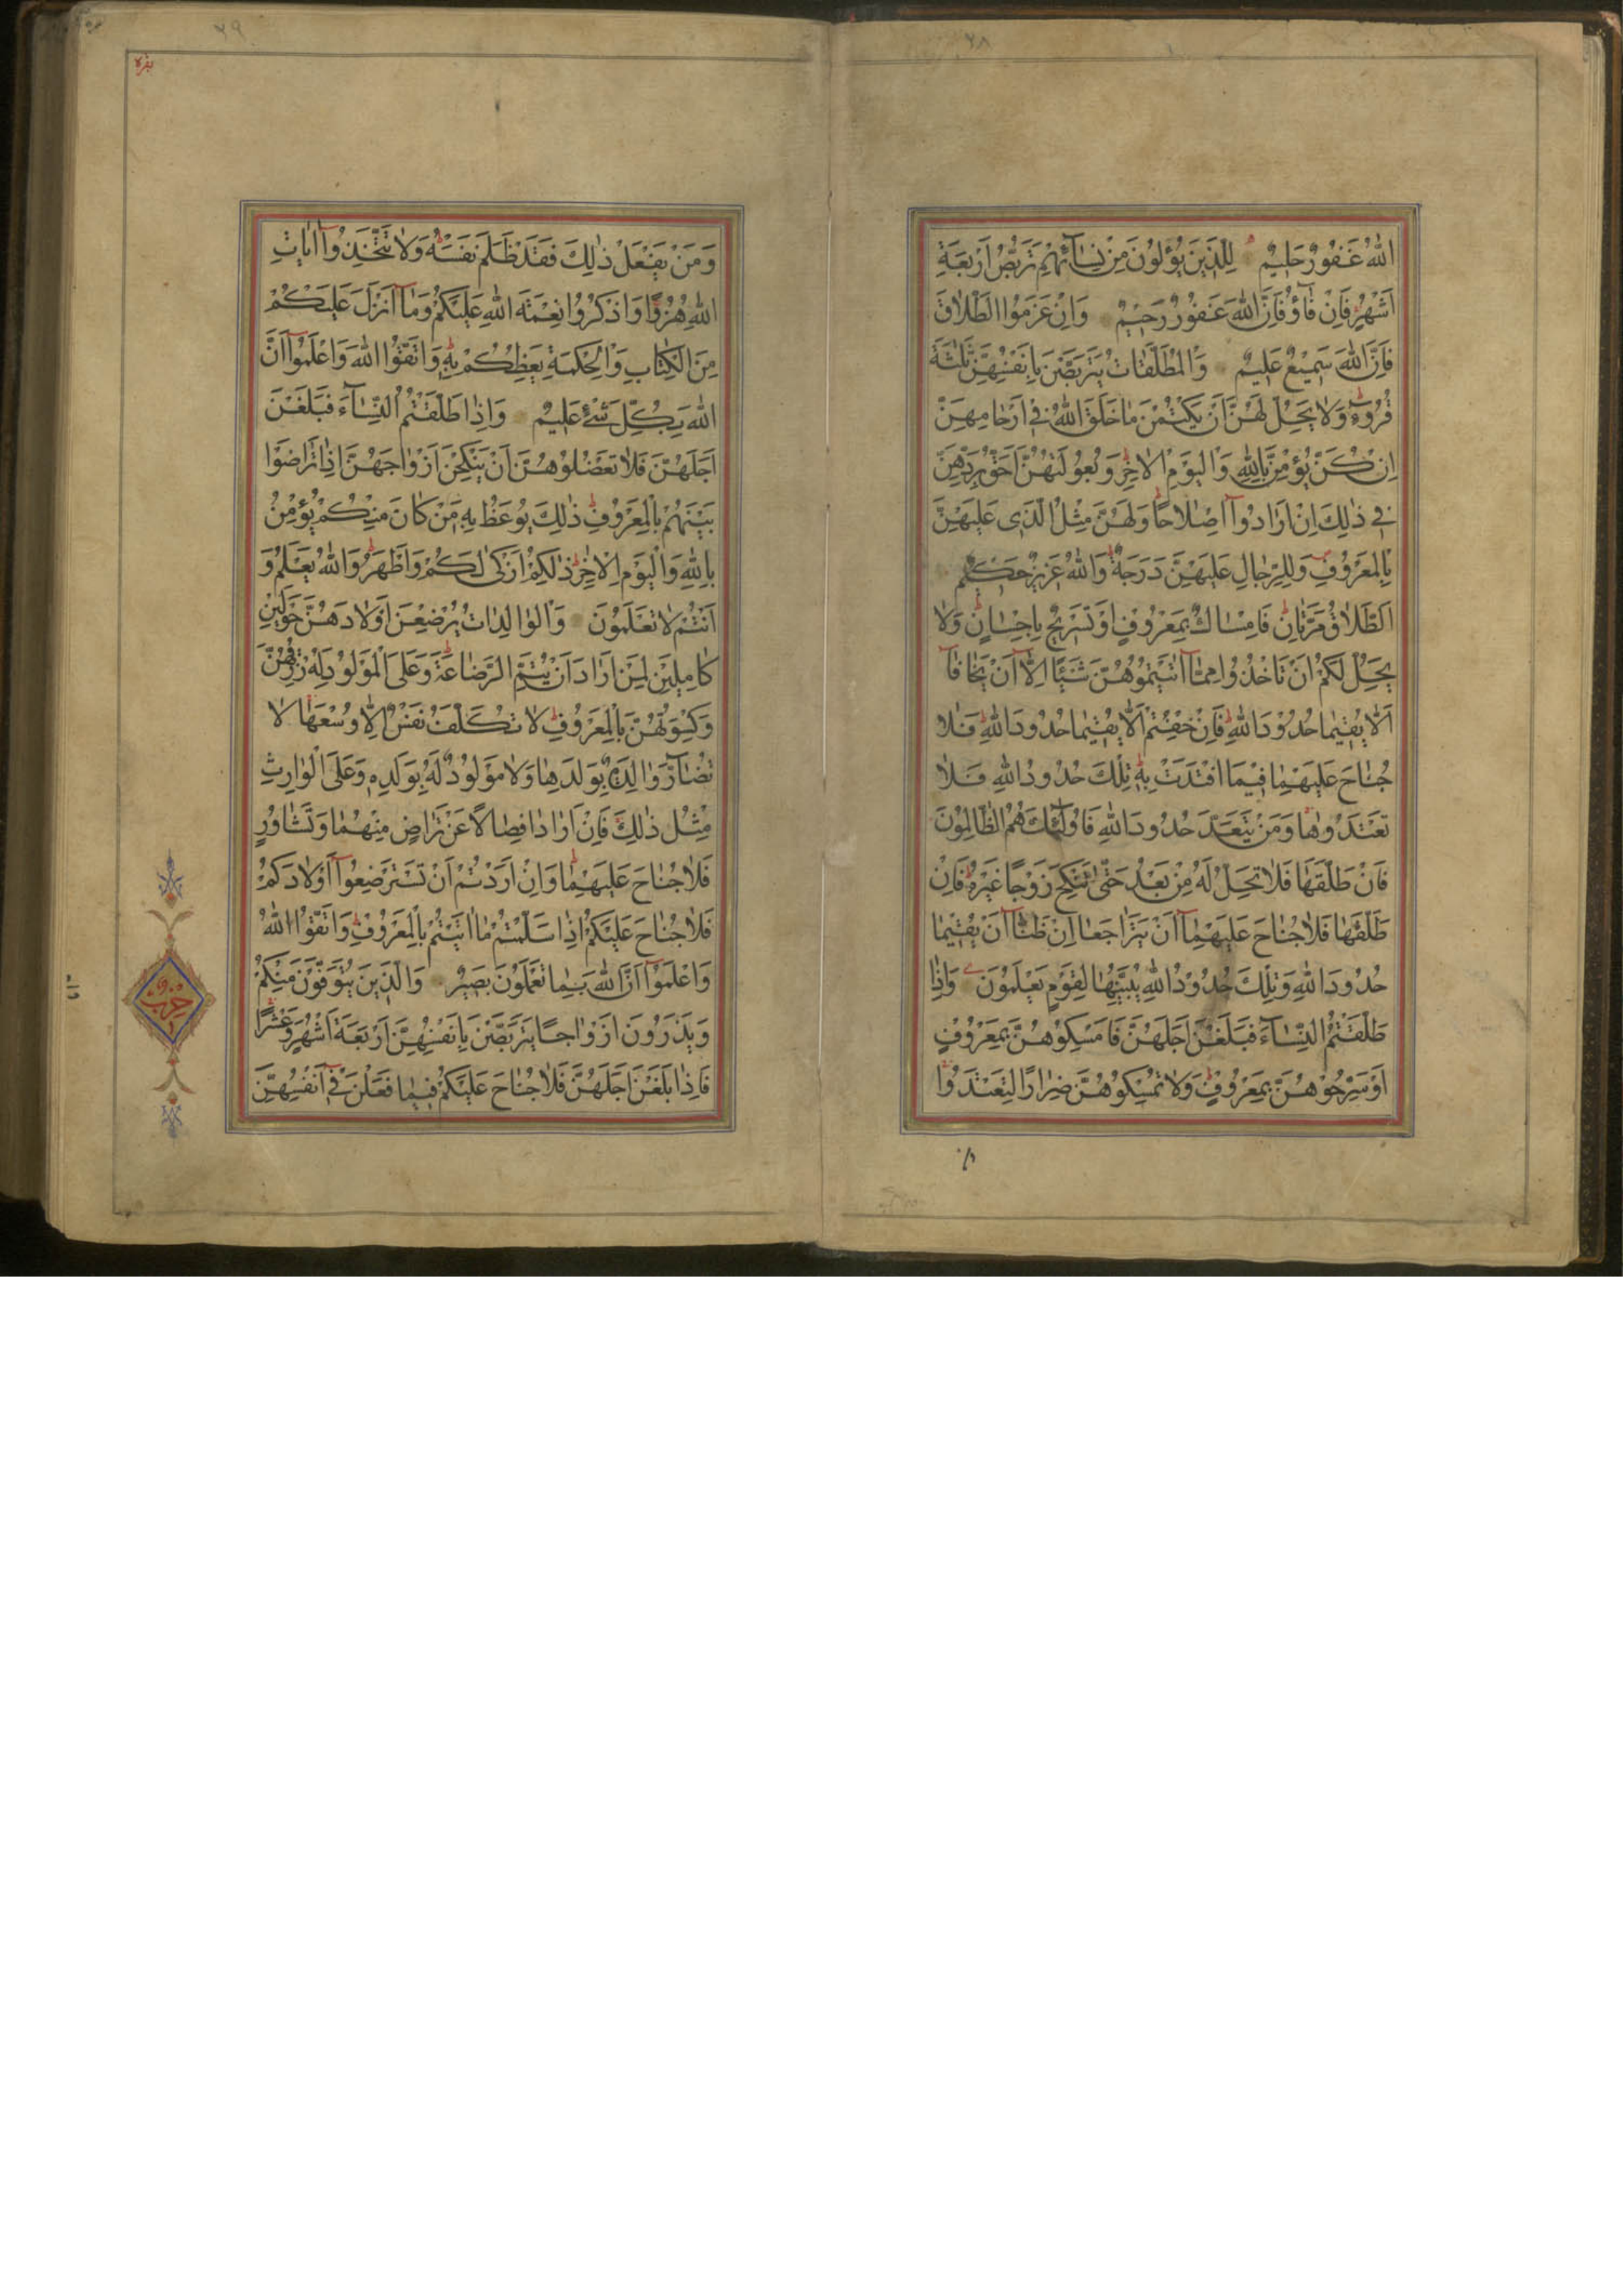 ٢٨
اللهُ غَفُورٌ حَلِيمٌ لِلَّذِينَ يُؤْلُونَ مِنْ نِسَآئِهِمْ تَرَبُّصُ اَرْبَعَةِ
اَشْهُرٍ فَاِنْ فَآؤُ فَاِنَّ اللهَ غَفُورٌ رَحِيمٌ وَاِنْ عَزَمُوا الطَّلَاقَ
فَاِنَّ اللهَ سَمِيعٌ عَلِيمٌ وَالْمُطَلَّقَاتُ يَتَرَبَّصْنَ بِاَنْفُسِهِنَّ ثَلٰثَةَ
قُرُوءٍ وَلَا يَحِلُّ لَهُنَّ اَنْ يَكْتُمْنَ مَا خَلَقَ اللهُ فِي اَرْحَامِهِنَّ
اِنْ كُنَّ يُؤْمِنَّ بِاللهِ وَالْيَوْمِ الْاٰخِرِ وَبُعُولَتُهُنَّ اَحَقُّ بِرَدِّهِنَّ
فِي ذٰلِكَ اِنْ اَرَادُوآ اِصْلَاحًا وَلَهُنَّ مِثْلُ الَّذِي عَلَيْهِنَّ
بِالْمَعْرُوفِ وَلِلرِّجَالِ عَلَيْهِنَّ دَرَجَةٌ وَاللهُ عَزِيزٌ حَكِيمٌ
اَلطَّلَاقُ مَرَّتَانِ فَاِمْسَاكٌ بِمَعْرُوفٍ اَوْ تَسْرِيحٌ بِاِحْسَانٍ وَلَا
يَحِلُّ لَكُمْ اَنْ تَاْخُذُوا مِمَّآ اٰتَيْتُمُوهُنَّ شَيْئًا اِلَّآ اَنْ يَخَافَآ
اَلَّا يُقِيمَا حُدُودَ اللهِ فَاِنْ خِفْتُمْ اَلَّا يُقِيمَا حُدُودَ اللهِ فَلَا
جُنَاحَ عَلَيْهِمَا فِيمَا افْتَدَتْ بِهِ تِلْكَ حُدُودُ اللهِ فَلَا
تَعْتَدُوهَا وَمَنْ يَتَعَدَّ حُدُودَ اللهِ فَاُولٰٓئِكَ هُمُ الظَّالِمُونَ
فَاِنْ طَلَّقَهَا فَلَا تَحِلُّ لَهُ مِنْ بَعْدُ حَتّٰى تَنْكِحَ زَوْجًا غَيْرَهُ فَاِنْ
طَلَّقَهَا فَلَا جُنَاحَ عَلَيْهِمَآ اَنْ يَتَرَاجَعَا اِنْ ظَنَّآ اَنْ يُقِيمَا
حُدُودَ اللهِ وَتِلْكَ حُدُودُ اللهِ يُبَيِّنُهَا لِقَوْمٍ يَعْلَمُونَ وَاِذَا
طَلَّقْتُمُ النِّسَآءَ فَبَلَغْنَ اَجَلَهُنَّ فَاَمْسِكُوهُنَّ بِمَعْرُوفٍ
اَوْ سَرِّحُوهُنَّ بِمَعْرُوفٍ وَلَا تُمْسِكُوهُنَّ ضِرَارًا لِتَعْتَدُوا
٢٩
بقره
وَمَنْ يَفْعَلْ ذٰلِكَ فَقَدْ ظَلَمَ نَفْسَهُ وَلَا تَتَّخِذُوآ اٰيَاتِ
اللهِ هُزُوًا وَاذْكُرُوا نِعْمَتَ اللهِ عَلَيْكُمْ وَمَآ اَنْزَلَ عَلَيْكُمْ
مِنَ الْكِتَابِ وَالْحِكْمَةِ يَعِظُكُمْ بِهِ وَاتَّقُوا اللهَ وَاعْلَمُوآ اَنَّ
اللهَ بِكُلِّ شَيْءٍ عَلِيمٌ وَاِذَا طَلَّقْتُمُ النِّسَآءَ فَبَلَغْنَ
اَجَلَهُنَّ فَلَا تَعْضُلُوهُنَّ اَنْ يَنْكِحْنَ اَزْوَاجَهُنَّ اِذَا تَرَاضَوْا
بَيْنَهُمْ بِالْمَعْرُوفِ ذٰلِكَ يُوعَظُ بِهِ مَنْ كَانَ مِنْكُمْ يُؤْمِنُ
بِاللهِ وَالْيَوْمِ الْاٰخِرِ ذٰلِكُمْ اَزْكٰى لَكُمْ وَاَطْهَرُ وَاللهُ يَعْلَمُ وَ
اَنْتُمْ لَا تَعْلَمُونَ وَالْوَالِدَاتُ يُرْضِعْنَ اَوْلَادَهُنَّ حَوْلَيْنِ
كَامِلَيْنِ لِمَنْ اَرَادَ اَنْ يُتِمَّ الرَّضَاعَةَ وَعَلَى الْمَوْلُودِ لَهُ رِزْقُهُنَّ
وَكِسْوَتُهُنَّ بِالْمَعْرُوفِ لَا تُكَلَّفُ نَفْسٌ اِلَّا وُسْعَهَا لَا
تُضَآرَّ وَالِدَةٌ بِوَلَدِهَا وَلَا مَوْلُودٌ لَهُ بِوَلَدِهِ وَعَلَى الْوَارِثِ
مِثْلُ ذٰلِكَ فَاِنْ اَرَادَا فِصَالًا عَنْ تَرَاضٍ مِنْهُمَا وَتَشَاوُرٍ
فَلَا جُنَاحَ عَلَيْهِمَا وَاِنْ اَرَدْتُمْ اَنْ تَسْتَرْضِعُوآ اَوْلَادَكُمْ
فَلَا جُنَاحَ عَلَيْكُمْ اِذَا سَلَّمْتُمْ مَا اٰتَيْتُمْ بِالْمَعْرُوفِ وَاتَّقُوا اللهَ
وَاعْلَمُوآ اَنَّ اللهَ بِمَا تَعْمَلُونَ بَصِيرٌ وَالَّذِينَ يُتَوَفَّوْنَ مِنْكُمْ
وَيَذَرُونَ اَزْوَاجًا يَتَرَبَّصْنَ بِاَنْفُسِهِنَّ اَرْبَعَةَ اَشْهُرٍ وَعَشْرًا
فَاِذَا بَلَغْنَ اَجَلَهُنَّ فَلَا جُنَاحَ عَلَيْكُمْ فِيمَا فَعَلْنَ فِيٓ اَنْفُسِهِنَّ
حزب